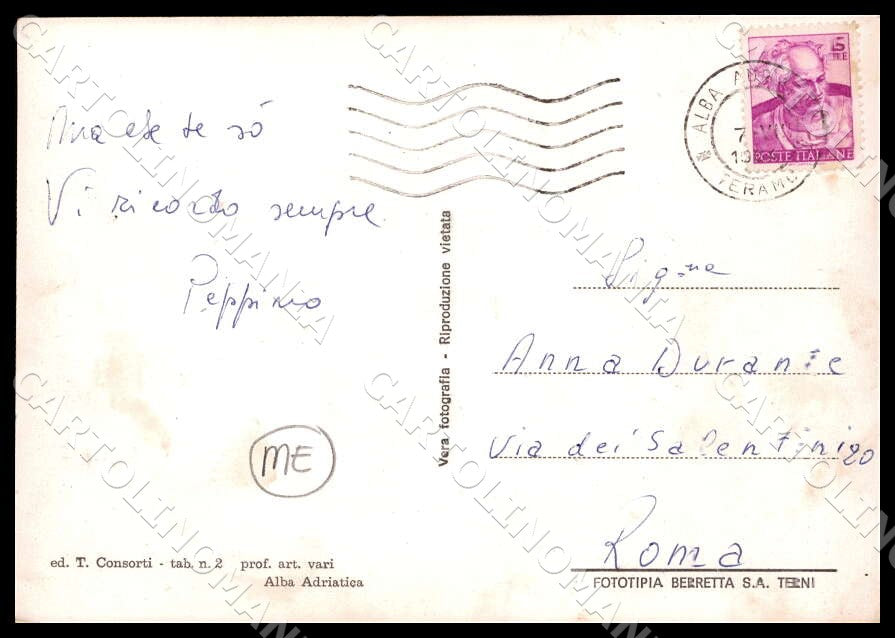 Vi ricordo sempre
Peppino
ME
ed. T. Consorti - tab. n. 2 prof. art. vari
Alba Adriatica
Vera fotografia - Riproduzione vietata
5
LIRE
POSTE ITALIANE
ALBA ADRIATICA
TERAMO
7
Sig.na
Anna Durante
Via dei Salentini 20
Roma
FOTOTIPIA BERRETTA S.A. TERNI
CARTOLINOMANIA